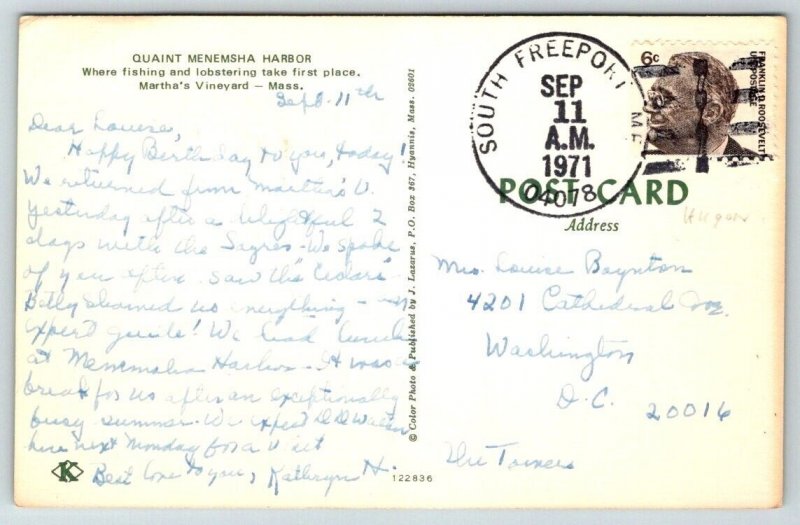 QUAINT MENEMSHA HARBOR
Where fishing and lobstering take first place.
Martha's Vineyard — Mass.
Sept. 11th
Dear Louise,
Happy Birthday to you, today!
We returned from Martha's V.
yesterday after a delightful 2
days with the Sagres - We spoke
of you often. Saw the "Cedars"
Betty showed us everything - an
expert guide! We had lunch
at Menemsha Harbor - It was a
break for us after an exceptionally
busy summer. We expect D.D. Watson
here next Monday for a visit
Best love to you, Kathryn H.
K
122836
© Color Photo & Published by J. Lazarus, P.O. Box 367, Hyannis, Mass. 02601
SOUTH FREEPORT ME
SEP
11
A.M.
1971
04078
6c
FRANKLIN D. ROOSEVELT
U.S. POSTAGE
POST CARD
Address
Mrs. Louise Boynton
4201 Cathedral Ave.
Washington
D.C. 20016
The Towers